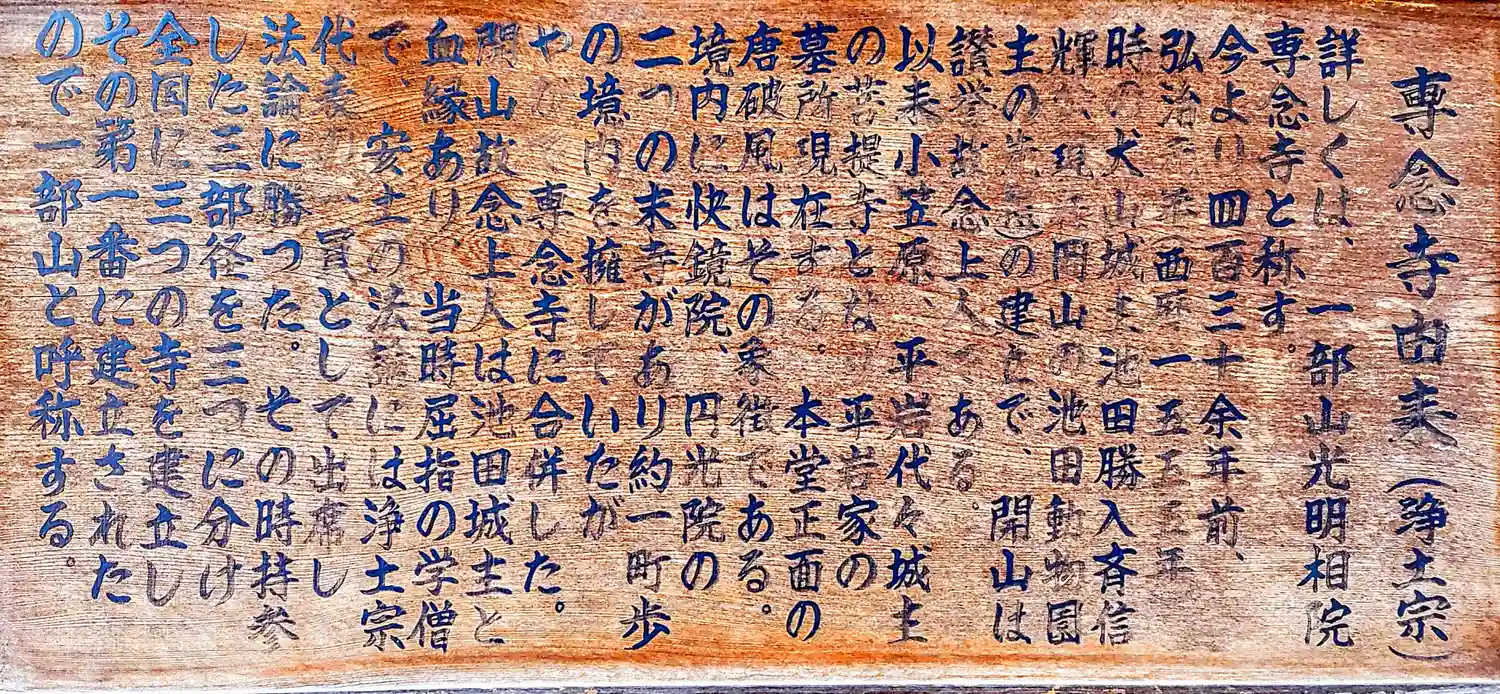 専念寺由来(浄土宗)
詳しくは、一部山光明相院
専念寺と称す。
今より四百三十余年前、
弘治元年(西暦一五五五年
時の犬山城主池田勝入斉信
輝 現 岡山の池田動物園
主の先 )の建立で、開山は
讃誉故念上人である。
以来小笠原、平岩代々城主
の菩提寺となり 平岩家の
墓所現在する。本堂正面の
唐破風はその象徴である。
境内に快鏡院、円光院の
二つの末寺があり約一町歩
の境内を擁していたが
やがて専念寺に合併した。
開山故念上人は池田城主と
血縁あり、当時屈指の学僧
で、安土の法論には浄土宗
代表の一員として出席し
法論に勝った。その時持参
した三部径を三つに分け
全国に三つの寺を建立し
その第一番に建立された
ので一部山と呼称する。